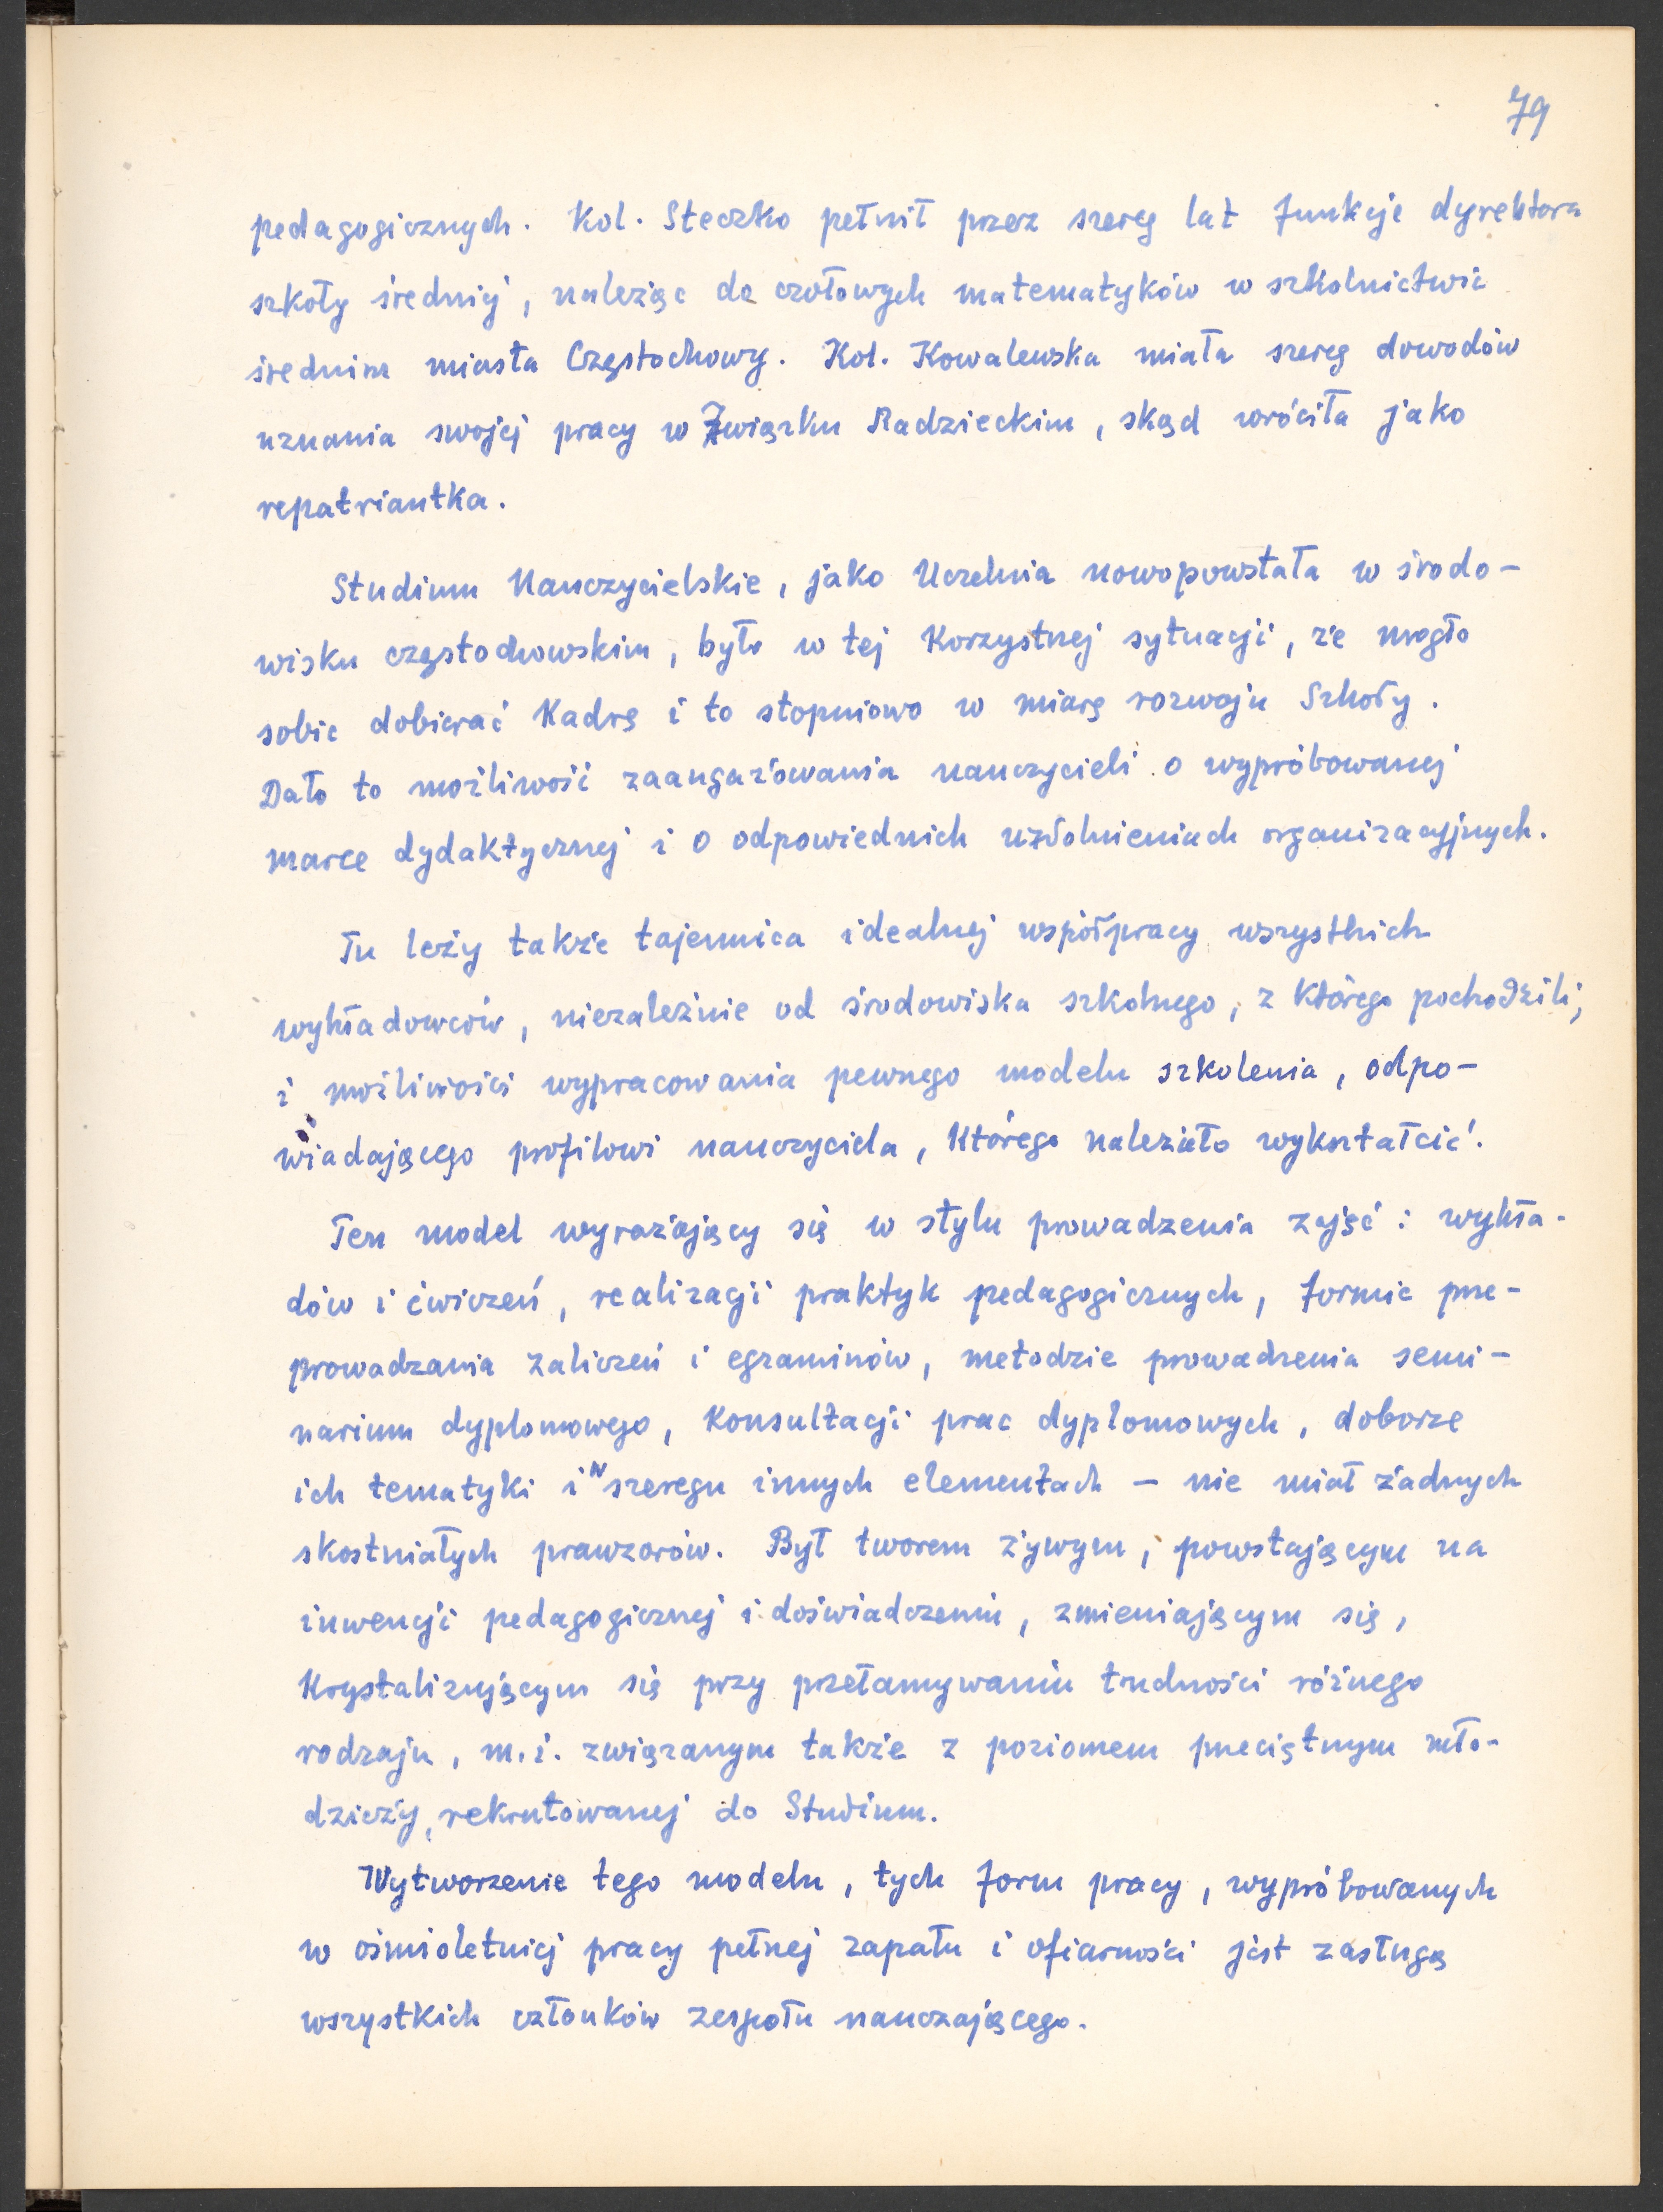 79
pedagogicznych. Kol. Steczko pełnił przez szereg lat funkcje dyrektora
szkoły średniej, należąc do czołowych matematyków w szkolnictwie
średnim miasta Częstochowy. Kol. Kowalewska miała szereg dowodów
uznania swojej pracy w Związku Radzieckim, skąd wróciła jako
repatriantka.
Studium Nauczycielskie, jako Uczelnia nowopowstała w środo-
wisku częstochowskim, było w tej korzystnej sytuacji, że mogło
sobie dobierać kadrę i to stopniowo w miarę rozwoju Szkoły.
Dało to możliwość zaangażowania nauczycieli o wypróbowanej
marce dydaktycznej i o odpowiednich uzdolnieniach organizacyjnych.
Tu leży także tajemnica idealnej współpracy wszystkich
wykładowców, niezależnie od środowiska szkolnego, z którego pochodzili,
i możliwości wypracowania pewnego modelu szkolenia, odpo-
wiadającego profilowi nauczyciela, którego należało wykształcić.
Ten model wyrażający się w stylu prowadzenia zajęć: wykła-
dów i ćwiczeń, realizacji praktyk pedagogicznych, formie prze-
prowadzania zaliczeń i egzaminów, metodzie prowadzenia semi-
narium dyplomowego, konsultacji prac dyplomowych, doborze
ich tematyki i w szeregu innych elementach – nie miał żadnych
skostniałych prawzorów. Był tworem żywym, powstającym na
inwencji pedagogicznej i doświadczeniu, zmieniającym się,
krystalizującym się przy przełamywaniu trudności różnego
rodzaju, m.i. związanym także z poziomem przeciętnym mło-
dzieży, rekrutowanej do Studium.
Wytworzenie tego modelu, tych form pracy, wypróbowanych
w ośmioletniej pracy pełnej zapału i ofiarności jest zasługą
wszystkich członków zespołu nauczającego.